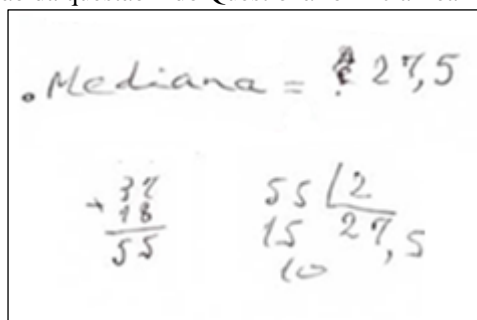 . Mediana = 27,5
37
+ 18
55
55 2
15 27,5
10